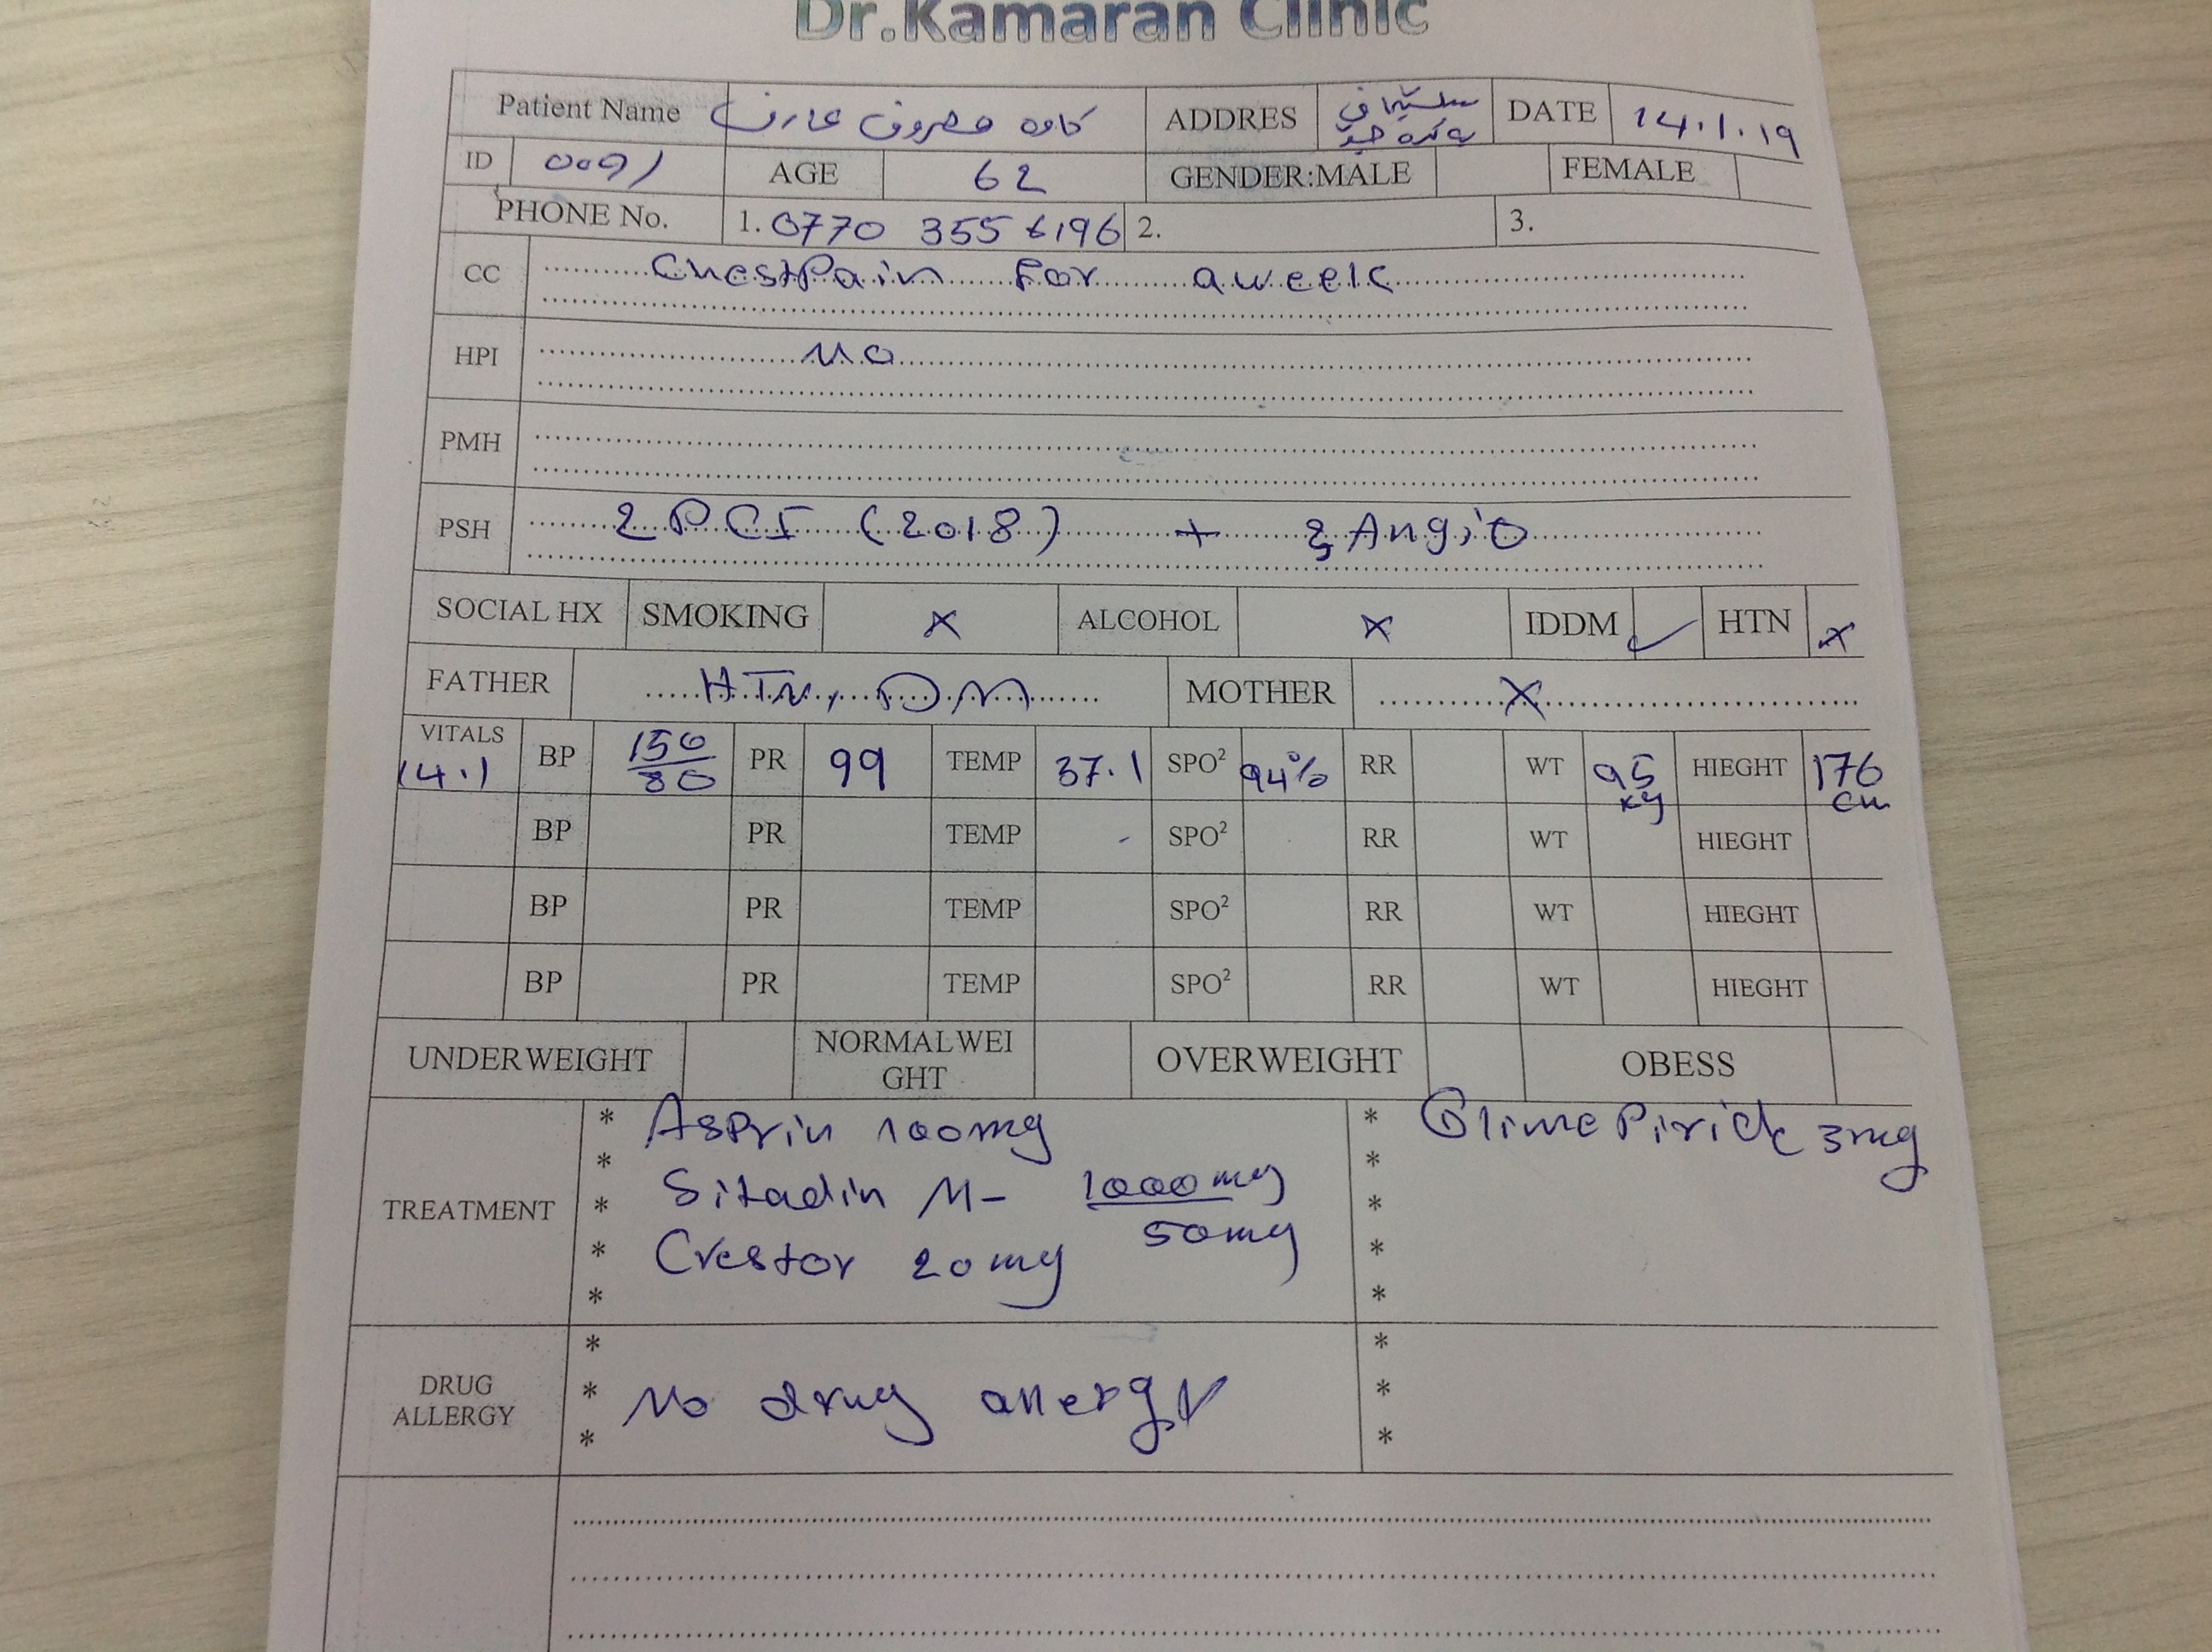 Dr.Kamaran Clinic
Patient Name کاوە معروف عارف ADDRES DATE 14.1.19
ID 0091 AGE 62 GENDER:MALE FEMALE
PHONE No. 1. 0770 355 6196 2. 3.
CC Chest Pain For a week
HPI No
PMH
PSH 2 PCI (2018) + Angio
SOCIAL HX SMOKING x ALCOHOL x IDDM ✓ HTN x
FATHER HTN, DM MOTHER X
VITALS 14.1 BP 150/80 PR 99 TEMP 37.1 SPO² 94% RR WT 95 kg HIEGHT 176 cm
BP PR TEMP SPO² RR WT HIEGHT
BP PR TEMP SPO² RR WT HIEGHT
BP PR TEMP SPO² RR WT HIEGHT
UNDERWEIGHT NORMALWEIGHT OVERWEIGHT OBESS
TREATMENT
* Asprin 100mg
* Sitadin M- 1000mg/50mg
* Crestor 20mg
*
*
* Glime Piride 3mg
*
*
*
*
DRUG ALLERGY
*
* No drug allergy
*
*
*
*